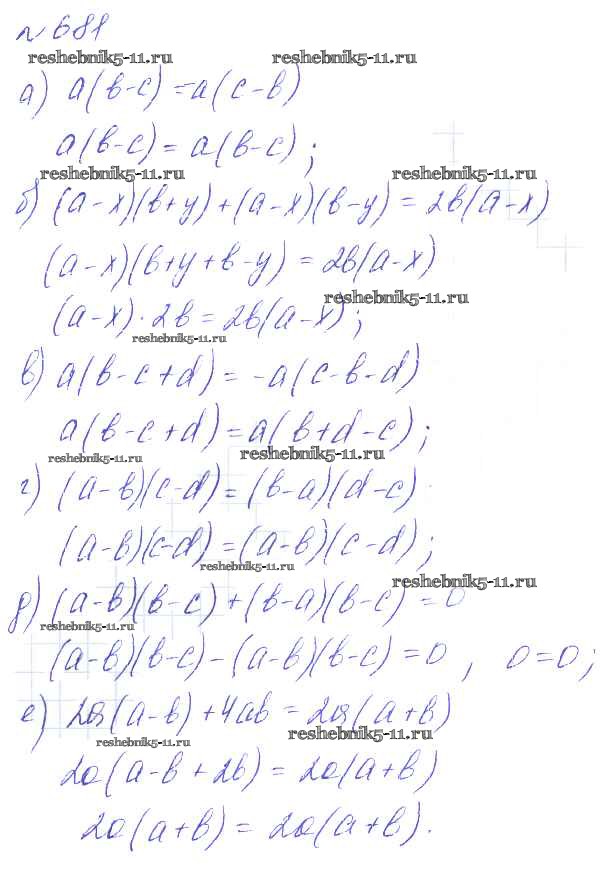 № 681
reshebnik5-11.ru reshebnik5-11.ru
а) a(b-c) = a(c-b)
a(b-c) = a(b-c);
reshebnik5-11.ru reshebnik5-11.ru
б) (a-x)(b+y)+(a-x)(b-y) = 2b(a-x)
(a-x)(b+y+b-y) = 2b(a-x)
reshebnik5-11.ru
(a-x)·2b = 2b(a-x);
reshebnik5-11.ru
в) a(b-c+d) = -a(c-b-d)
a(b-c+d) = a(b+d-c);
reshebnik5-11.ru reshebnik5-11.ru
г) (a-b)(c-d) = (b-a)(d-c)
(a-b)(c-d) = (a-b)(c-d);
reshebnik5-11.ru
reshebnik5-11.ru
д) (a-b)(b-c)+(b-a)(b-c) = 0
reshebnik5-11.ru
(a-b)(b-c)-(a-b)(b-c) = 0, 0=0;
е) 2a(a-b)+4ab = 2a(a+b)
reshebnik5-11.ru reshebnik5-11.ru
2a(a-b+2b) = 2a(a+b)
2a(a+b) = 2a(a+b).